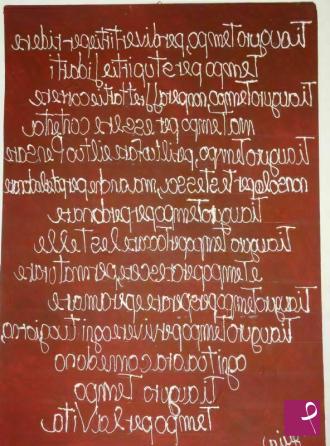 Ti auguro Tempo, per divertirti e per ridere
Tempo per stupirti e fidarti
Ti auguro Tempo, non per affrettarti e correre
ma Tempo per essere contento
Ti auguro Tempo, per il tuo fare e il tuo Pensare
non solo per te stesso, ma anche per
Ti auguro Tempo per perdonare
Ti auguro tempo per toccare le stelle
e Tempo per crescere, per maturare
Ti auguro Tempo per sperare e per amare
Ti auguro Tempo per vivere ogni tuo giorno,
ogni tua ora come dono
Ti auguro Tempo
Tempo per la Vita